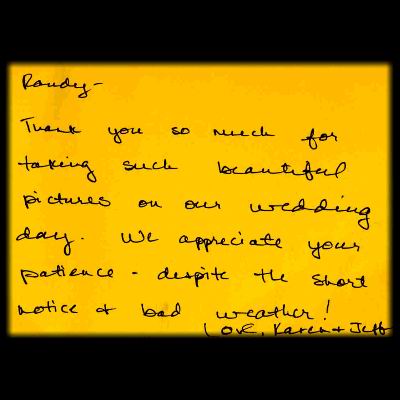 Randy-
Thank you so much for
taking such beautiful
pictures on our wedding
day. We appreciate your
patience - despite the short
notice & bad weather!
Love, Karen + Jeff